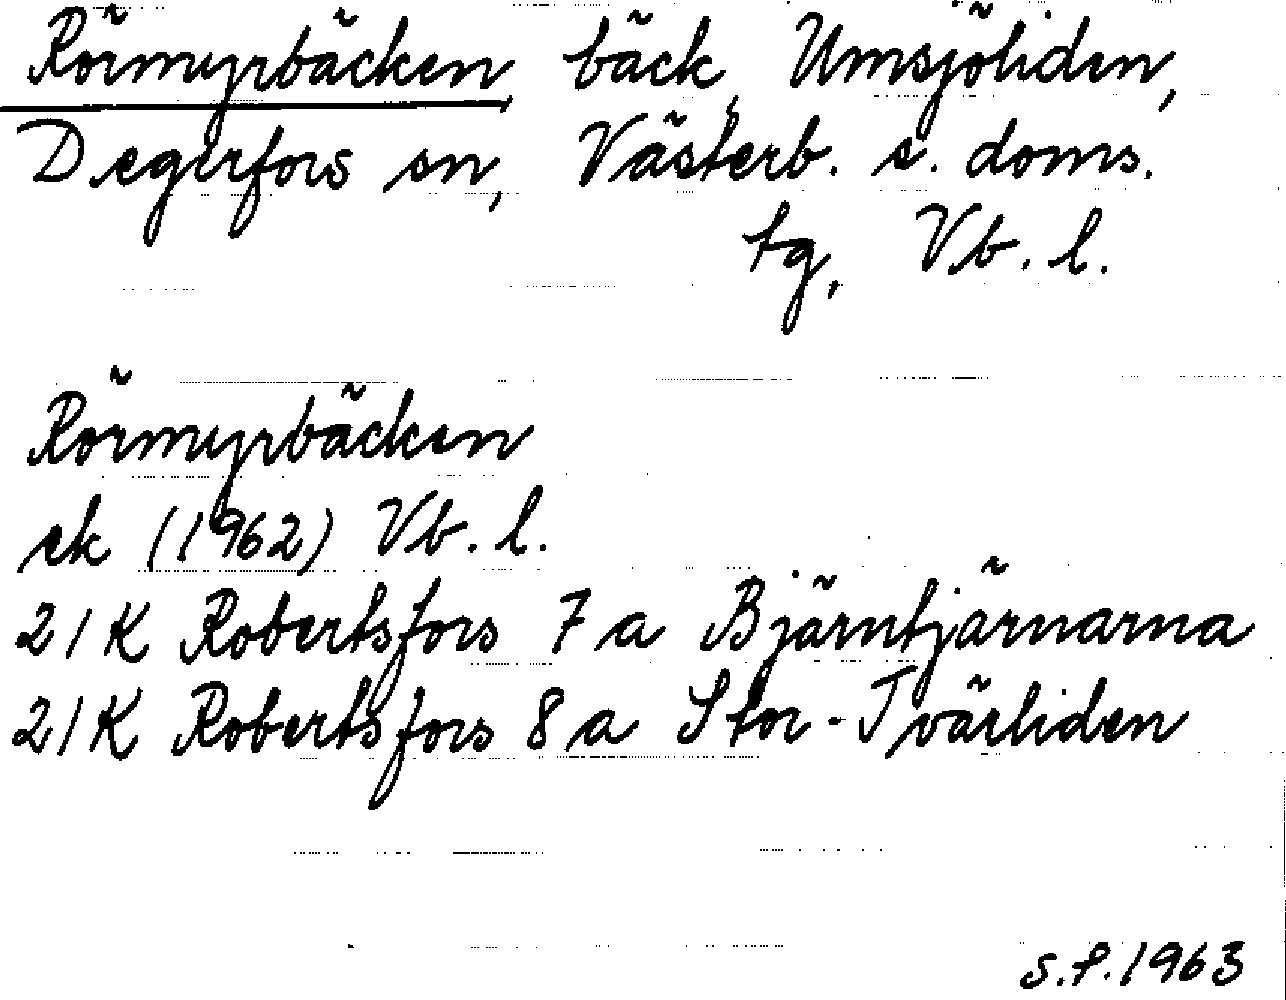 Rörmyrbäcken, bäck, Umsjöliden,
Degerfors sn, Västerb. s. doms.
tg, Vb. l.
Rörmyrbäcken
ek (1962) Vb. l.
21K Robertsfors 7a Bjärntjärnarna
21K Robertsfors 8a Stor-Tvärliden
S.P. 1963